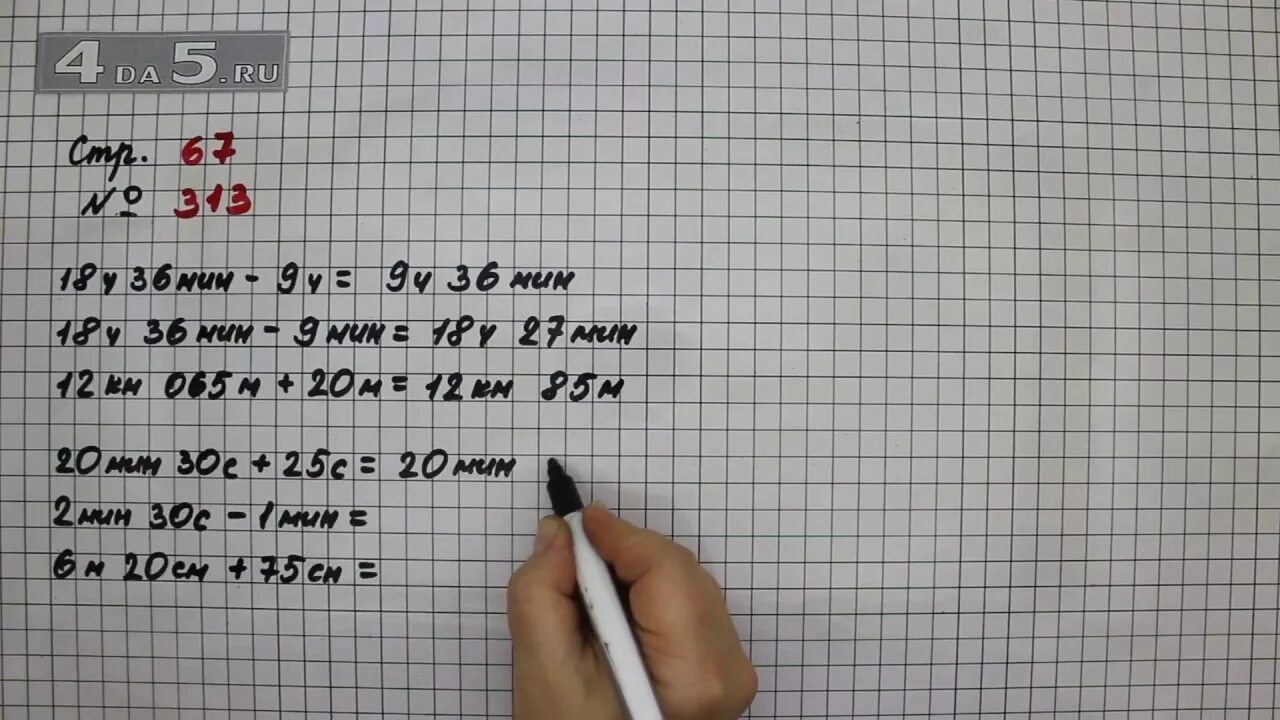 4DA5.RU
Стр. 67
№ 313
18ч 36мин - 9ч = 9ч 36мин
18ч 36мин - 9мин = 18ч 27мин
12км 065м + 20м = 12км 85м
20мин 30с + 25с = 20мин
2мин 30с - 1мин =
6м 20см + 75см =